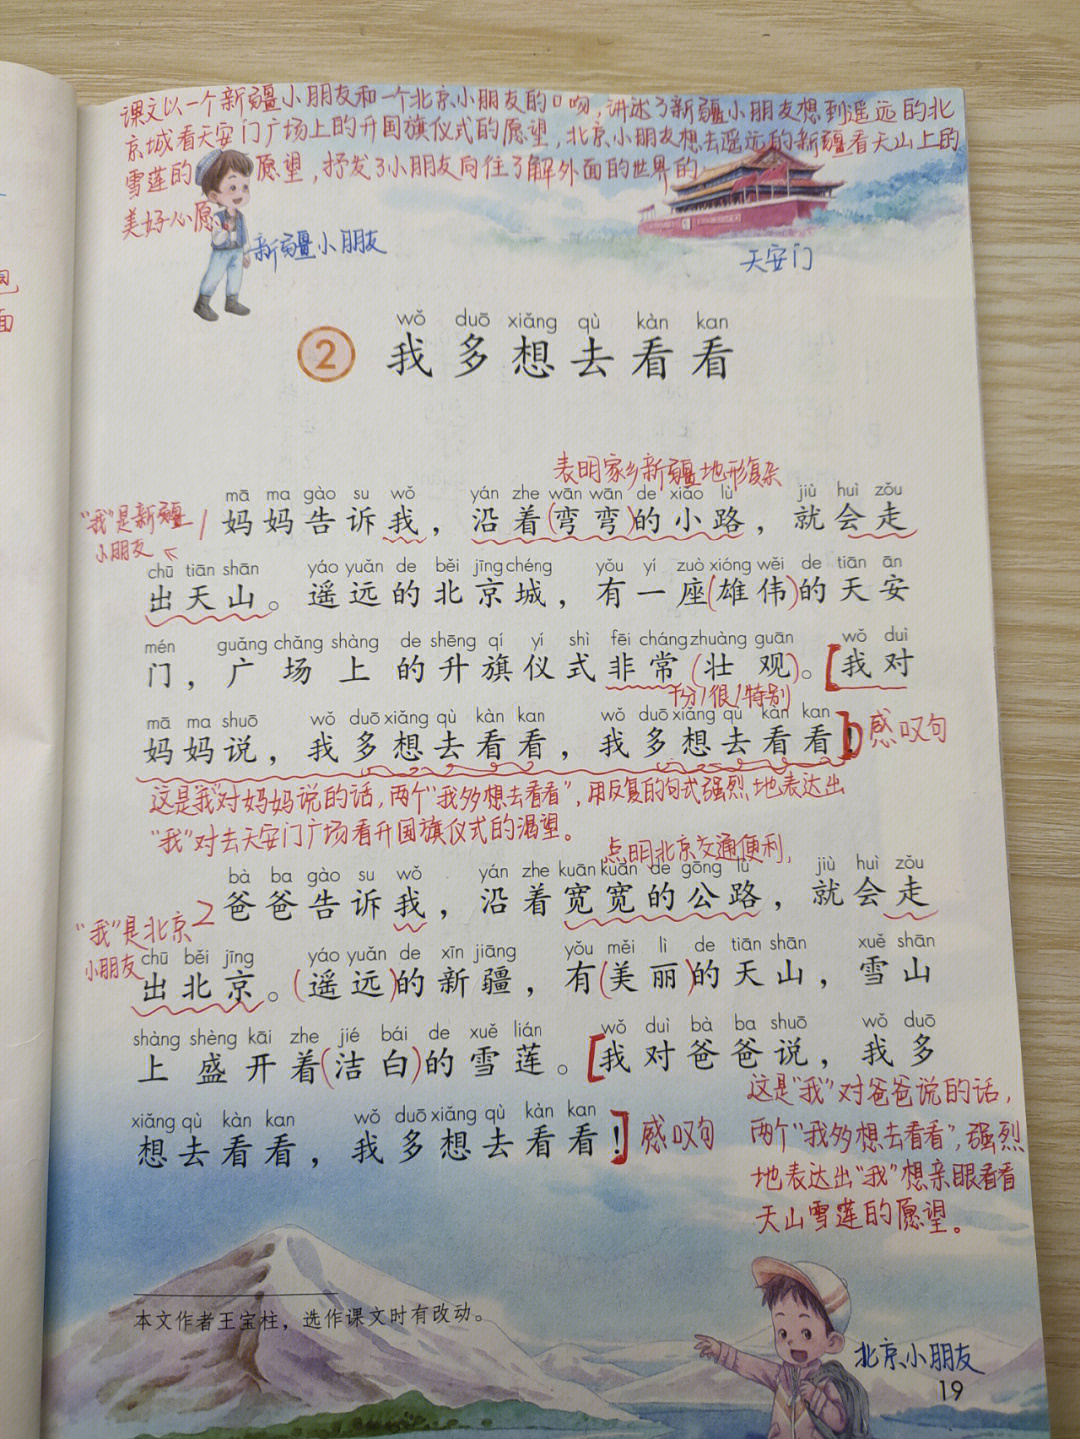 课文以一个新疆小朋友和一个北京小朋友的口吻，讲述了新疆小朋友想到遥远的北
京城看天安门广场上的升国旗仪式的愿望，北京小朋友想去遥远的新疆看天山上的
雪莲的愿望，抒发了小朋友向往了解外面的世界的
美好心愿
新疆小朋友
天安门
wǒ duō xiǎng qù kàn kan
2 我多想去看看
表明家乡新疆地形复杂
mā ma gào su wǒ yán zhe wān wān de xiǎo lù jiù huì zǒu
“我”是新疆
小朋友
1 妈妈告诉我，沿着(弯弯)的小路，就会走
chū tiān shān yáo yuǎn de běi jīng chéng yǒu yí zuò xióng wěi de tiān ān
出天山。遥远的北京城，有一座(雄伟)的天安
mén guǎng chǎng shàng de shēng qí yí shì fēi cháng zhuàng guān wǒ duì
门，广场上的升旗仪式非常(壮观)。[我对
十分/很/特别
mā ma shuō wǒ duō xiǎng qù kàn kan wǒ duō xiǎng qù kàn kan
妈妈说，我多想去看看，我多想去看看！] 感叹句
这是“我”对妈妈说的话，两个“我多想去看看”，用反复的句式强烈地表达出
“我”对去天安门广场看升国旗仪式的渴望。
点明北京交通便利，
bà ba gào su wǒ yán zhe kuān kuān de gōng lù jiù huì zǒu
“我”是北京
小朋友
2 爸爸告诉我，沿着宽宽的公路，就会走
chū běi jīng yáo yuǎn de xīn jiāng yǒu měi lì de tiān shān xuě shān
出北京。(遥远)的新疆，有(美丽)的天山，雪山
shàng shèng kāi zhe jié bái de xuě lián wǒ duì bà ba shuō wǒ duō
上盛开着(洁白)的雪莲。[我对爸爸说，我多
xiǎng qù kàn kan wǒ duō xiǎng qù kàn kan
想去看看，我多想去看看！] 感叹句
这是“我”对爸爸说的话，
两个“我多想去看看”，强烈
地表达出“我”想亲眼看看
天山雪莲的愿望。
本文作者王宝柱，选作课文时有改动。
北京小朋友
19